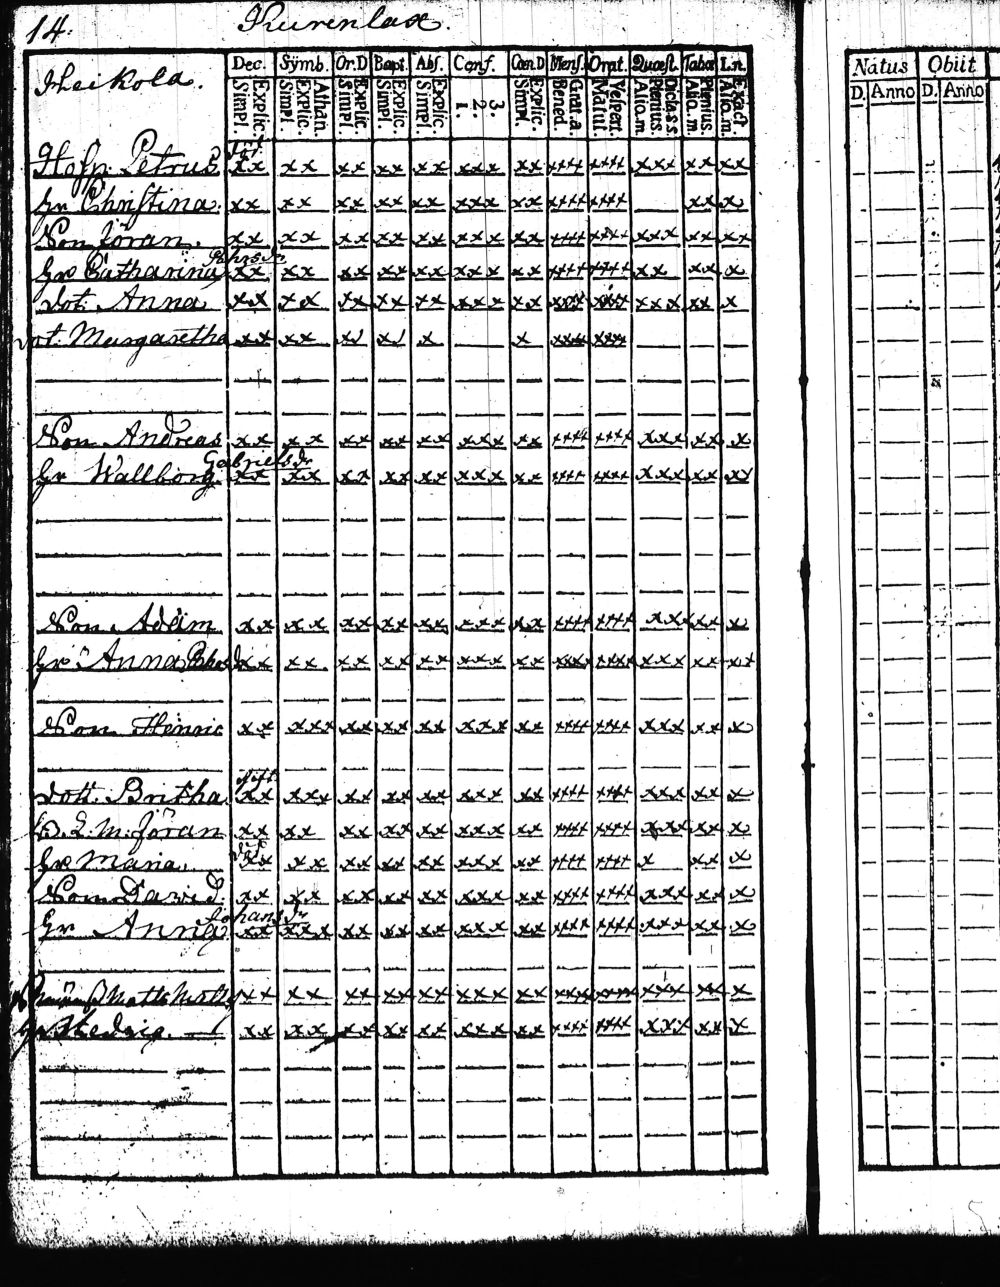 14. Kurenlax.
Heikola.
Dec. Symb. Or.D Bapt. Abs. Conf. Cœn.D Mens. Orat. Quæst. Tabœ Ln.
Explic. Simpl. Athan. Explic. Simpl. Explic. Simpl. Explic. Simpl. Explic. Simpl. 3. 2. 1. Explic. Simpl. Grat. a. Bened. Vespert. Matut. Dicta s.s. Plenius. Alio. m. Plenius. Alio. m. Exact. Alio. m.
Natus Obiit
D. Anno D. Anno
Petrus xx xx xx xx xx xxx xx xxxx xxxx xxx xx xx
Hr Christina. xx xx xx xx xx xxx xx xxxx xxxx xx x
Son Jöran. xx xx xx xx xx xxx xx xxxx xxxx xxx xx xx
Pehrs Dr
Hr Catharina xx xx xx xx xx xxx xx xxxx xxxx xx xx x
Dot. Anna xx xx xx xx xx xxx xx xxxx xxxx xxx xx x
Dot. Margaretha xx xx x x x x xxxx xxxx
Son Andreas xx xx xx xx xx xxx xx xxxx xxxx xxx xx x
Gabriels Dr
Hr Wallborg. xx xx xx xx xx xxx xx xxxx xxxx xxx xx xx
Son Adam xx xx xx xx xx xxx xx xxxx xxxx xxx xx x
Hr Anna Pehrs Dr xx xx xx xx xx xxx xx xxxx xxxx xxx xx xx
Son Henric xx xxx xx xx xx xxx xx xxxx xxxx xxx xx x
Dott. Britha xx xxx xx xx xx xxx xx xxxx xxxx xxx xx x
Jöran xx xx xx xx xx xxx xx xxxx xxxx xxx xx x
Hr Maria. xx xx xx xx xx xxx xx xxxx xxxx x xx x
Son David. xx xx xx xx xx xxx xx xxxx xxxx xxx xx x
Johans Dr
Hr Anna xx xxx xx xx xx xxx xx xxxx xxxx xxx xx x
Matts xx xx xx xx xx xxx xx xxxx xxxx xxx xx x
Hr Hedvig. xx xx xx xx xx xxx xx xxxx xxxx xxx xx x